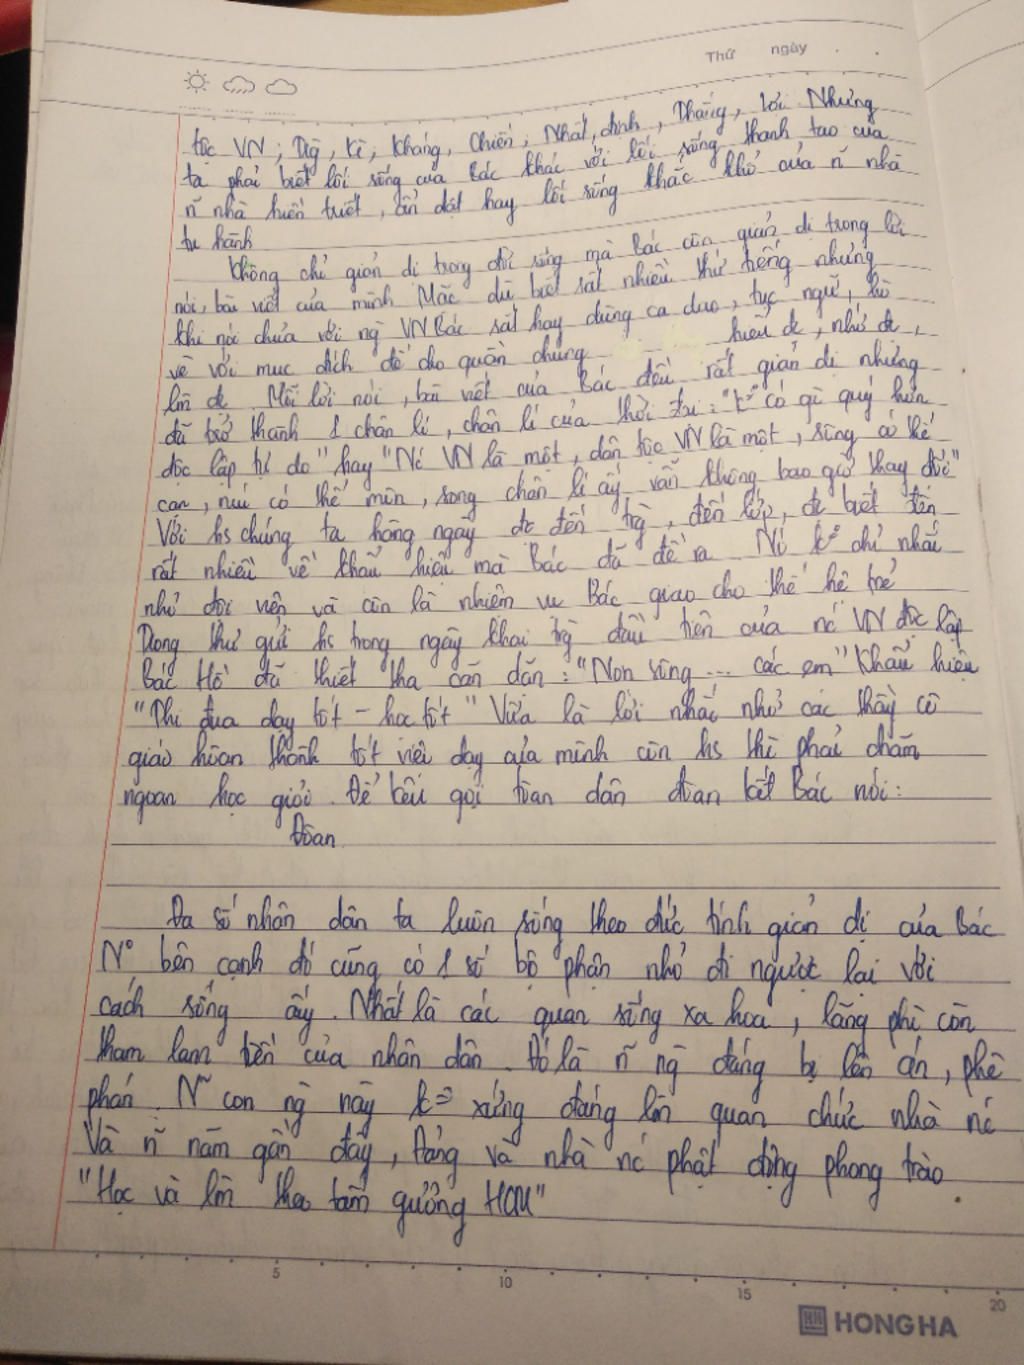 Thứ ngày
tộc VN; Trg, Kì, Kháng, Chiến, Nhất, định, Thắng, Lợi. Nhưng
ta phải biết lối sống của Bác khác với lối sống thanh tao của
ñ nhà hiền triết, ẩn dật hay lối sống khắc khổ của ñ nhà
tu hành
Không chỉ giản dị trong đời sống mà Bác còn giản dị trong lời
nói, bài viết của mình. Mặc dù biết rất nhiều thứ tiếng nhưng
khi nói chưa với ng VN Bác rất hay dùng ca dao, tục ngữ, hò
vè với mục đích để cho quần chúng hiểu đc, nhớ đc,
làm đc. Mỗi lời nói, bài viết của Bác đều rất giản dị nhưng
đã trở thành 1 chân lí, chân lí của thời đại: "k° có gì quý hơn
độc lập tự do" hay "Nc VN là một, dân tộc VN là một, sông có thể
cạn, núi có thể mòn, song chân lí ấy vẫn không bao giờ thay đổi"
Với hs chúng ta hằng ngày đc đến trg, đến lớp, đc biết đến
rất nhiều về khẩu hiệu mà Bác đã đề ra. Nó k° chỉ nhắc
nhở đội viên và còn là nhiệm vụ Bác giao cho thế hệ trẻ
Trong thư gửi hs trong ngày khai trg đầu tiên của nc VN độc lập
Bác Hồ đã thiết tha căn dặn: "Non sông ... các em" Khẩu hiệu
"Thi đua dạy tốt - học tốt" Vừa là lời nhắc nhở các thầy cô
giáo hoàn thành tốt việc dạy của mình còn hs thì phải chăm
ngoan học giỏi. Để kêu gọi toàn dân đoàn kết Bác nói:
Đoàn
Đa số nhân dân ta luôn sống theo đức tính giản dị của Bác
N° bên cạnh đó cũng có 1 số bộ phận nhỏ đi ngược lại với
cách sống ấy. Nhất là các quan sống xa hoa, lãng phì còn
tham lam tiền của nhân dân. Đó là ñ ng đáng bị lên án, phê
phán. Ñ con ng này k° xứng đáng làm quan chức nhà nc
Và ñ năm gần đây, Đảng và nhà nc phật động phong trào
"Học và làm theo tấm gương HCM".
5 10 15 20
HONG HA